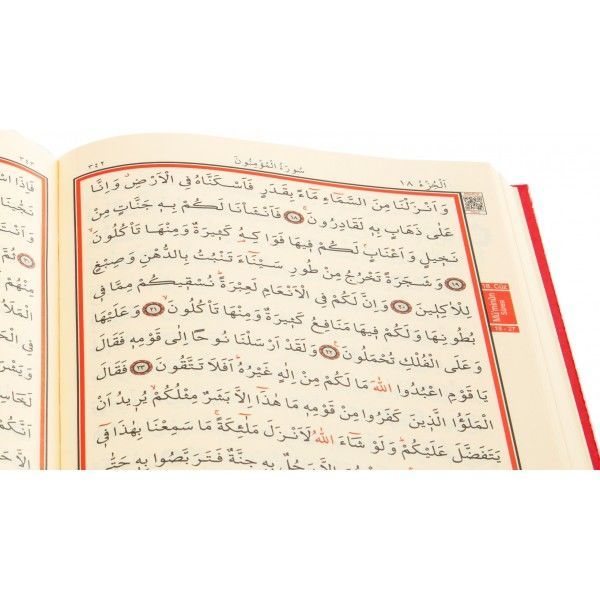 ٣٤٢ سُورَةُ الْمُؤْمِنُونَ اَلْجُزْءُ ١٨
وَاَنْزَلْنَا مِنَ السَّمَٓاءِ مَٓاءً بِقَدَرٍ فَاَسْكَنَّاهُ فِي الْاَرْضِۗ وَاِنَّا
عَلٰى ذَهَابٍ بِه۪ لَقَادِرُونَۚ ﴿١٨﴾ فَاَنْشَأْنَا لَكُمْ بِه۪ جَنَّاتٍ مِنْ
نَخ۪يلٍ وَاَعْنَابٍۢ لَكُمْ ف۪يهَا فَوَاكِهُ كَث۪يرَةٌ وَمِنْهَا تَأْكُلُونَۙ
﴿١٩﴾ وَشَجَرَةً تَخْرُجُ مِنْ طُورِ سَيْنَٓاءَ تَنْبُتُ بِالدُّهْنِ وَصِبْغٍ
لِلْاٰكِل۪ينَ ﴿٢٠﴾ وَاِنَّ لَكُمْ فِي الْاَنْعَامِ لَعِبْرَةًۜ نُسْق۪يكُمْ مِمَّا ف۪ي
بُطُونِهَا وَلَكُمْ ف۪يهَا مَنَافِعُ كَث۪يرَةٌ وَمِنْهَا تَأْكُلُونَۙ ﴿٢١﴾ وَعَلَيْهَا
وَعَلَى الْفُلْكِ تُحْمَلُونَ۟ ﴿٢٢﴾ وَلَقَدْ اَرْسَلْنَا نُوحًا اِلٰى قَوْمِه۪ فَقَالَ
يَا قَوْمِ اعْبُدُوا اللّٰهَ مَا لَكُمْ مِنْ اِلٰهٍ غَيْرُهُۜ اَفَلَا تَتَّقُونَ ﴿٢٣﴾ فَقَالَ
الْمَلَؤُا الَّذ۪ينَ كَفَرُوا مِنْ قَوْمِه۪ مَا هٰذَٓا اِلَّا بَشَرٌ مِثْلُكُمْۙ يُر۪يدُ اَنْ
يَتَفَضَّلَ عَلَيْكُمْۜ وَلَوْ شَٓاءَ اللّٰهُ لَاَنْزَلَ مَلٰٓئِكَةًۚ مَا سَمِعْنَا بِهٰذَا ف۪ٓي
رَجُلٌ بِه۪ جِنَّةٌ فَتَرَبَّصُوا بِه۪ حَتّٰى
18. CÜZ
Mü'minûn
Sûresi
18 - 27
٣٤٣